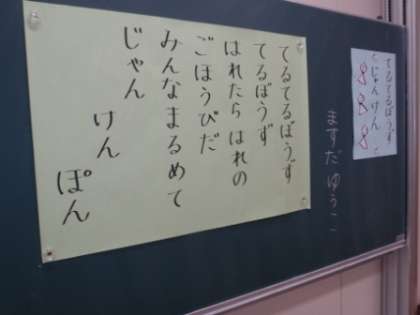 てるてるぼうず
じゃんけん
8 8 8
ますだ ゆうこ
てるてるぼうず
てるぼうず
はれたら はれの
ごほうびだ
みんな まるめて
じゃん
けん
ぽん